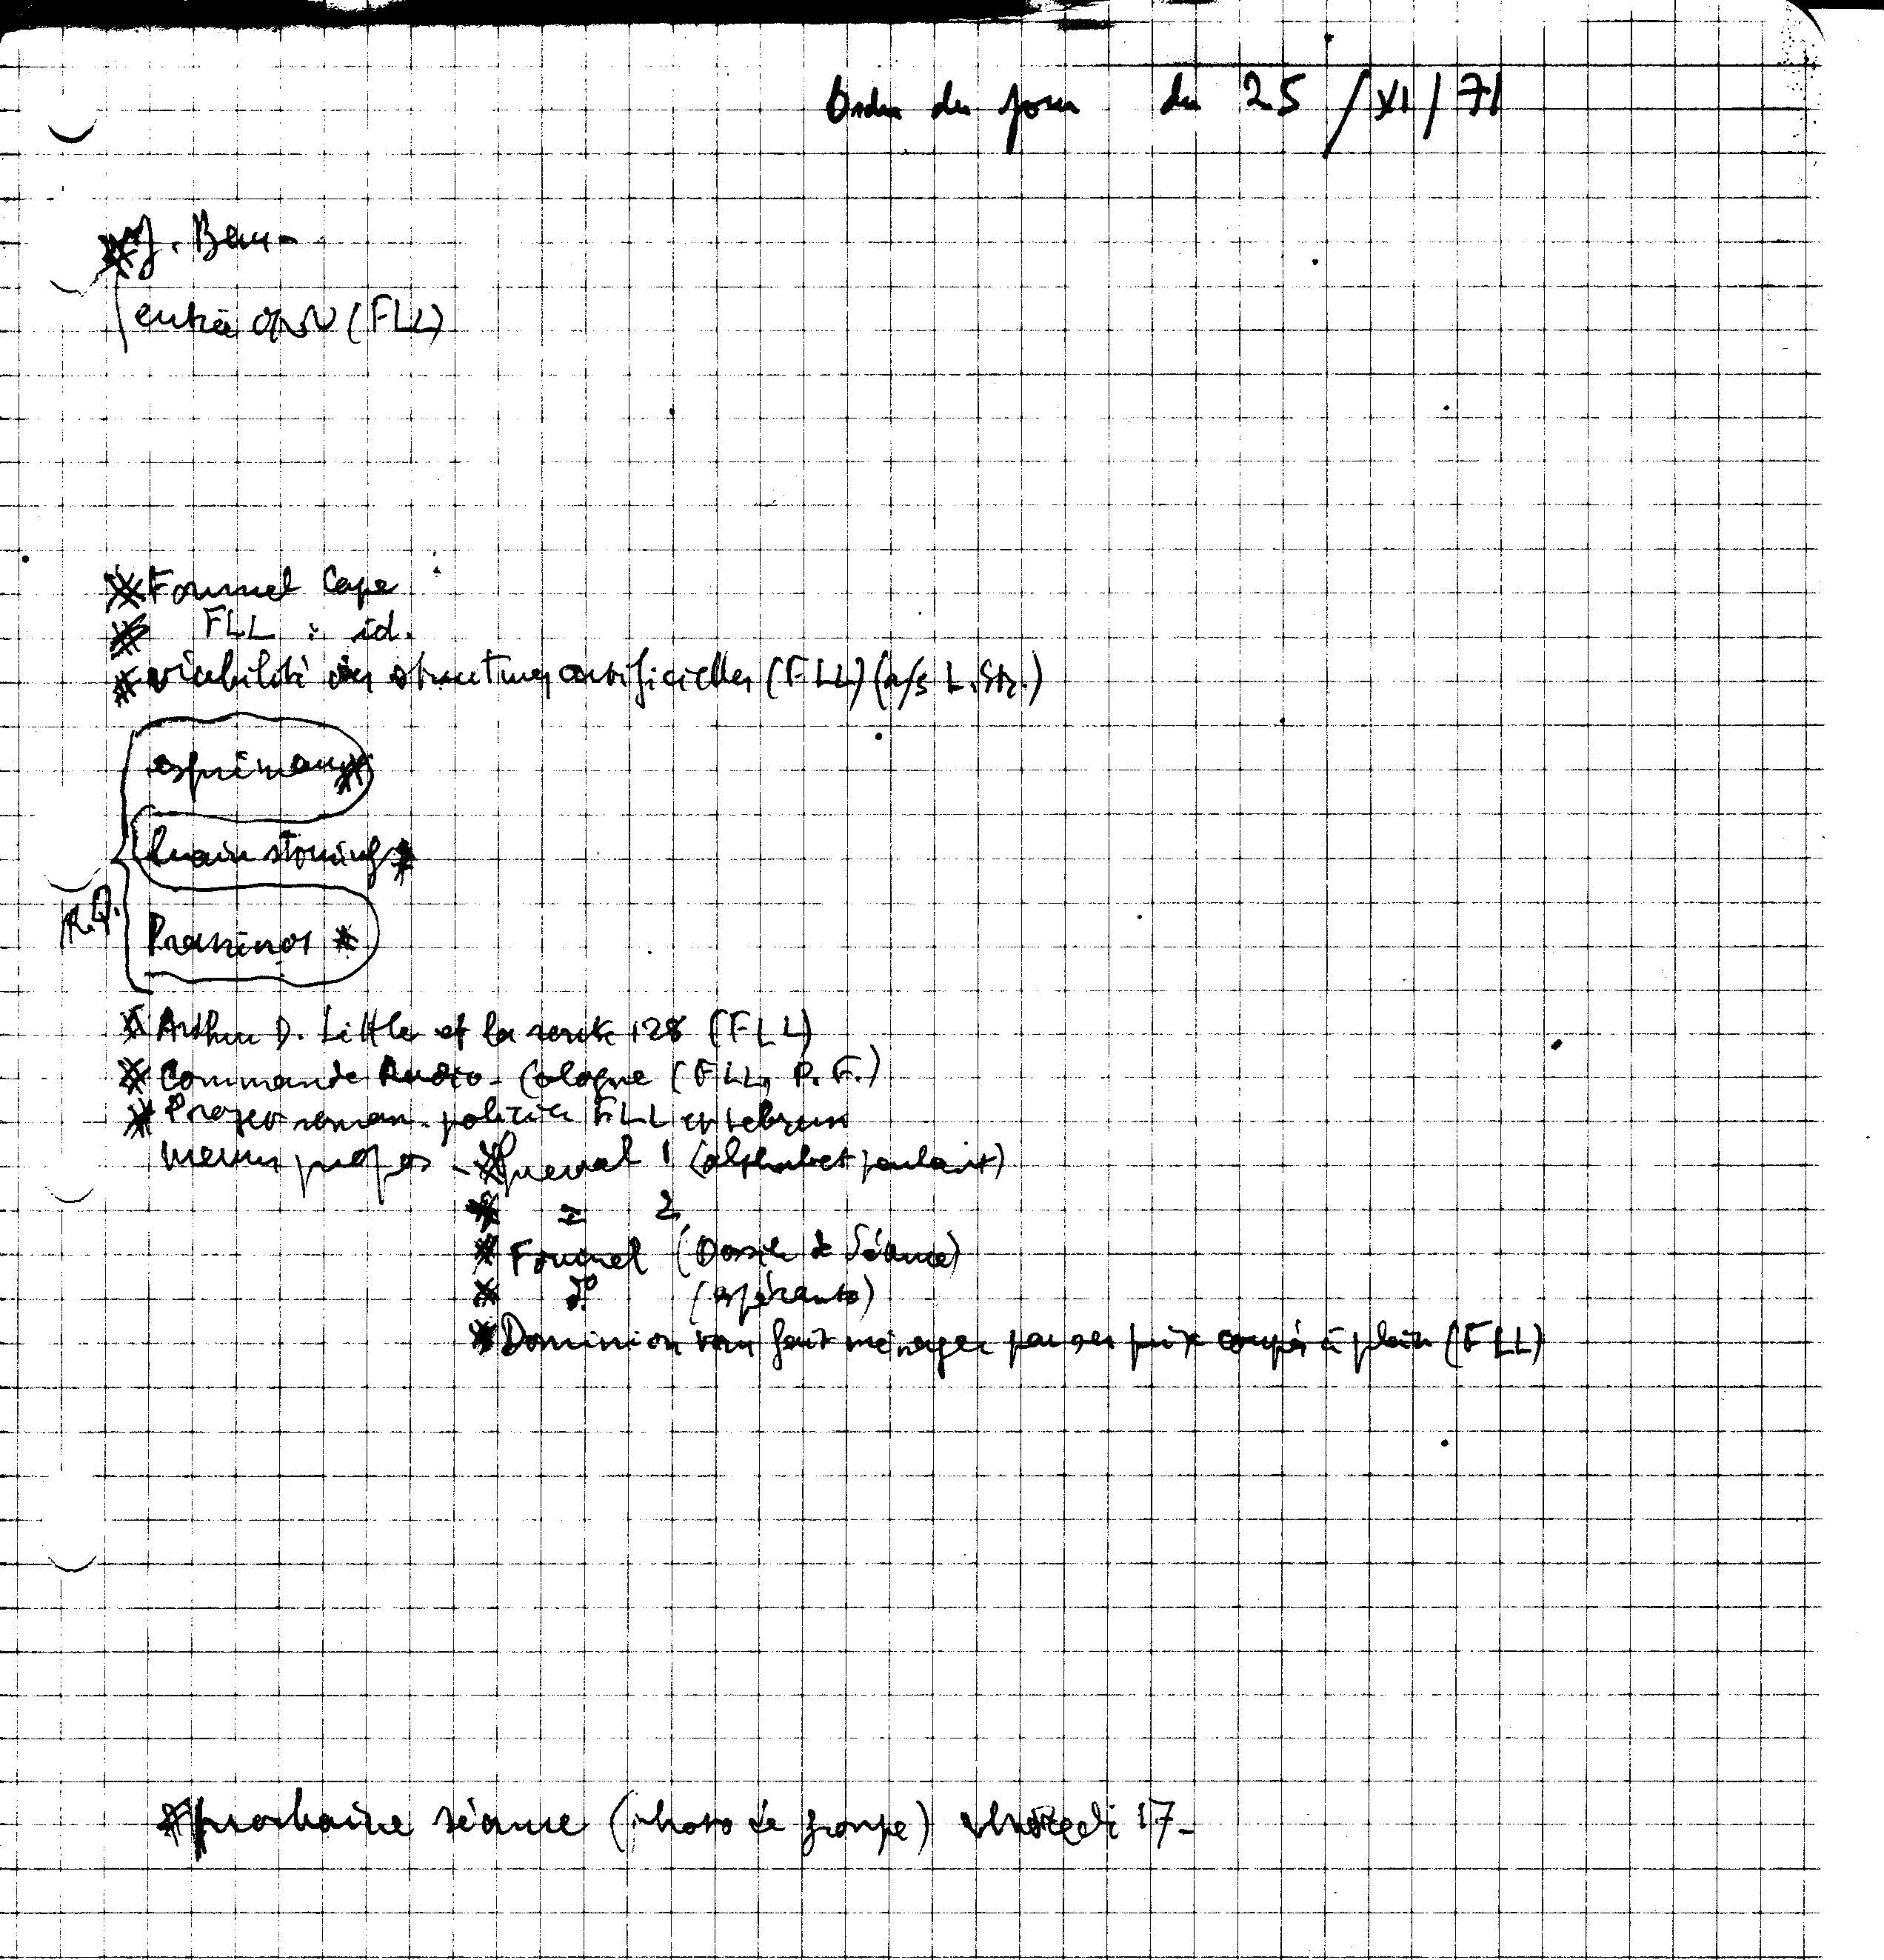 Ordre du jour du 25/XI/71
J. Bens -
entrée (FLL)
Fournel Cape
FLL : id.
viabilité des structures artificielles (FLL) (a/s L. Str.)
esquimaux
brain storming
R.Q.
Prassinos
Arthur D. Little et la route 128 (FLL)
Commande Radio-Cologne (FLL, P.F.)
Projet roman policier FLL et Lebrun
menus propos - Queval 1 (alphabet parlant)
= 2
Fournel (Dossier de Séance)
d° (espéranto)
Dominion vous fait ménager par ses prix coupés à plein (FLL)
prochaine séance (photo de groupe) 17 -